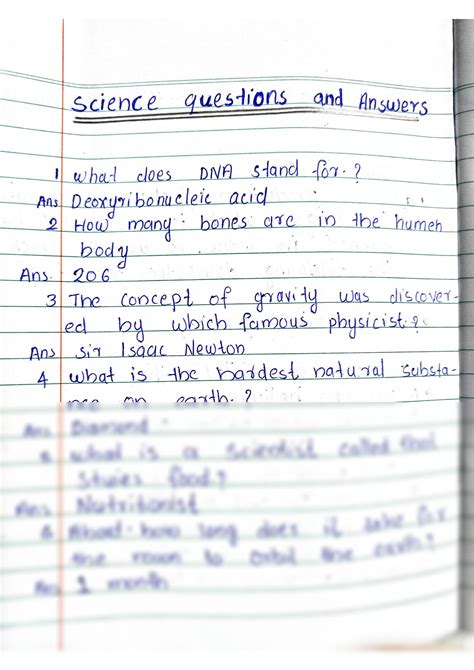 Science questions and Answers
1 What does DNA stand for.?
Ans Deoxyribonucleic acid
2 How many bones are in the humen
body
Ans. 206
3 The concept of gravity was discover-
ed by which famous physicist.?
Ans Sir Isaac Newton
4 what is the hardest natural substa-
nce on earth.?
Ans Diamond
what is a scientist called that
food?
Ans Nutritionist
6 About how long does it take for
the moon to orbit the earth?
Ans 1 month